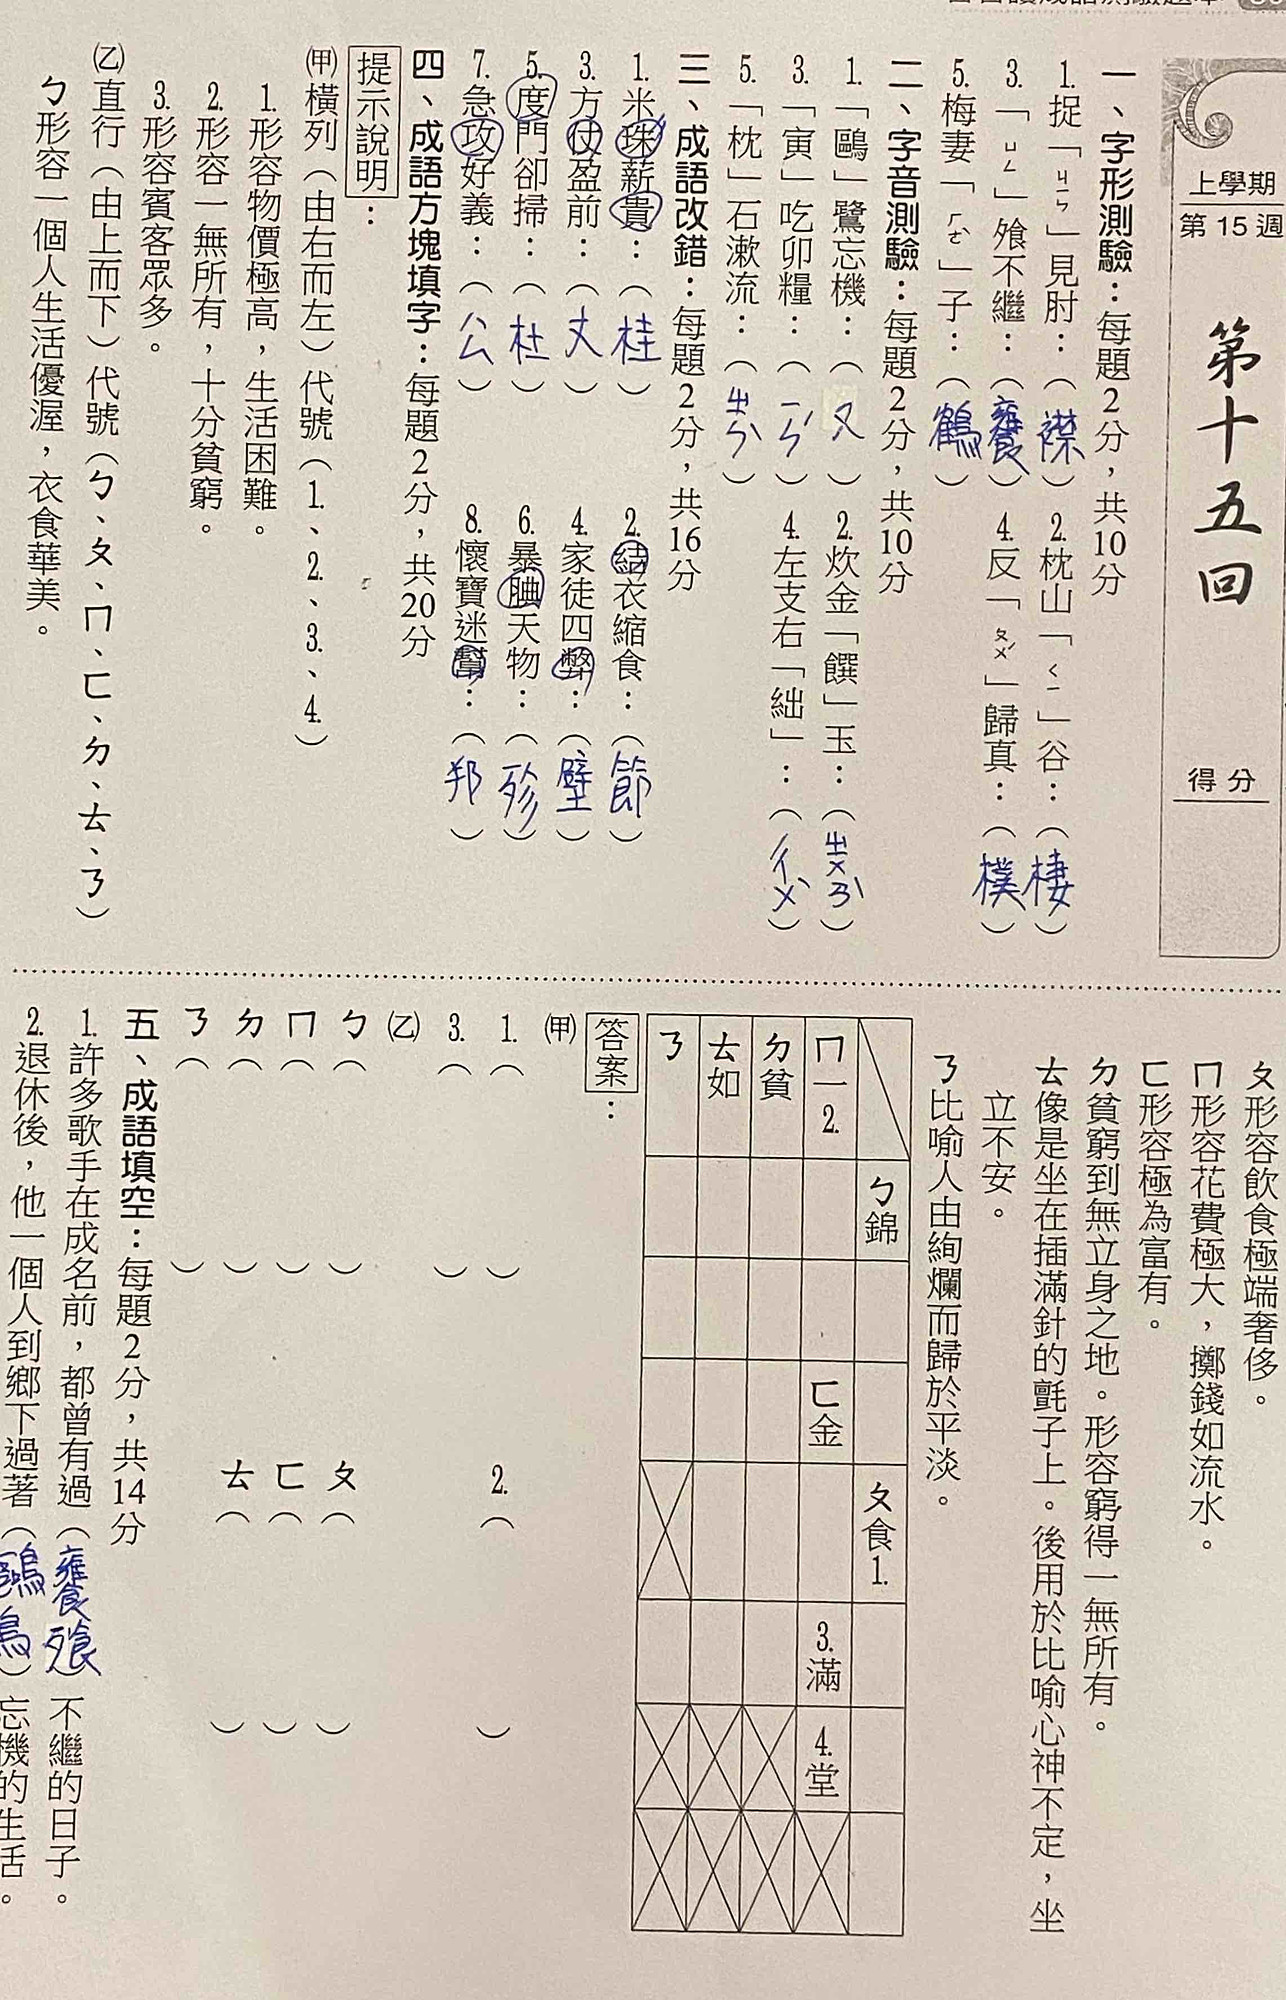 上學期
第15週
第十五回
得分
一、字形測驗：每題2分，共10分
1.捉「ㄐㄧㄣ」見肘：（襟） 2.枕山「ㄑㄧ」谷：（棲）
3.「ㄩㄥ」飧不繼：（饔） 4.反「ㄆㄨˊ」歸真：（樸）
5.梅妻「ㄏㄜˋ」子：（鶴）
二、字音測驗：每題2分，共10分
1.「鷗」鷺忘機：（ㄡ） 2.炊金「饌」玉：（ㄓㄨㄢˋ）
3.「寅」吃卯糧：（ㄧㄣˊ） 4.左支右「絀」：（ㄔㄨˋ）
5.「枕」石漱流：（ㄓㄣˋ）
三、成語改錯：每題2分，共16分
1.米珠薪貴：（桂） 2.結衣縮食：（節）
3.方仗盈前：（丈） 4.家徒四弊：（壁）
5.度門卻掃：（杜） 6.暴腆天物：（殄）
7.急攻好義：（公） 8.懷寶迷幫：（邦）
四、成語方塊填字：每題2分，共20分
提示說明：
㈙橫列（由右而左）代號（1.、2.、3.、4.）
1.形容物價極高，生活困難。
2.形容一無所有，十分貧窮。
3.形容賓客眾多。
㈚直行（由上而下）代號（ㄅ、ㄆ、ㄇ、ㄈ、ㄉ、ㄊ、ㄋ）
ㄅ形容一個人生活優渥，衣食華美。
ㄆ形容飲食極端奢侈。
ㄇ形容花費極大，擲錢如流水。
ㄈ形容極為富有。
ㄉ貧窮到無立身之地。形容窮得一無所有。
ㄊ像是坐在插滿針的氈子上。後用於比喻心神不定，坐
立不安。
ㄋ比喻人由絢爛而歸於平淡。
ㄅ錦 ㄆ食1.
ㄇ一2. ㄈ金 3.滿 4.堂
ㄉ貧
ㄊ如
ㄋ
答案：
㈙
1.（ ） 2.（ ）
3.（ ）
㈚
ㄅ（ ） ㄆ（ ）
ㄇ（ ） ㄈ（ ）
ㄉ（ ） ㄊ（ ）
ㄋ（ ）
五、成語填空：每題2分，共14分
1.許多歌手在成名前，都曾有過（饔飧）不繼的日子。
2.退休後，他一個人到鄉下過著（鷗鳥）忘機的生活。